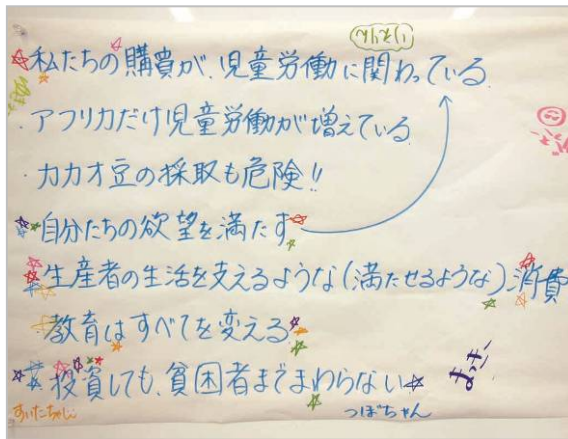 私たちの購買が、児童労働に関わっている
・アフリカだけ児童労働が増えている
・カカオ豆の採取も危険!!
自分たちの欲望を満たす
生産者の生活を支えるような(満たせるような)消費
教育はすべてを変える
投資しても、貧困者までまわらない
つぼちゃん